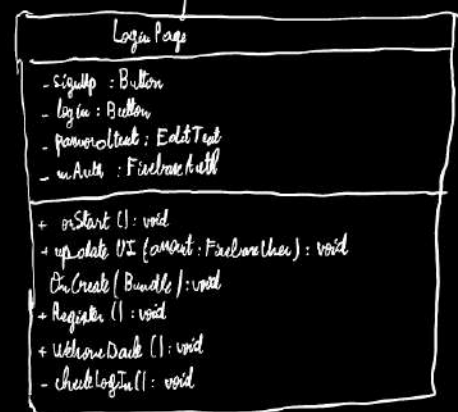 Login Page
- signUp : Button
- login : Button
- passwordtext : EditText
- mAuth : FirebaseAuth
+ onStart () : void
+ update UI (account : FirebaseUser) : void
OnCreate (Bundle) : void
+ Register () : void
+ WelcomeBack () : void
- checkLogIn() : void